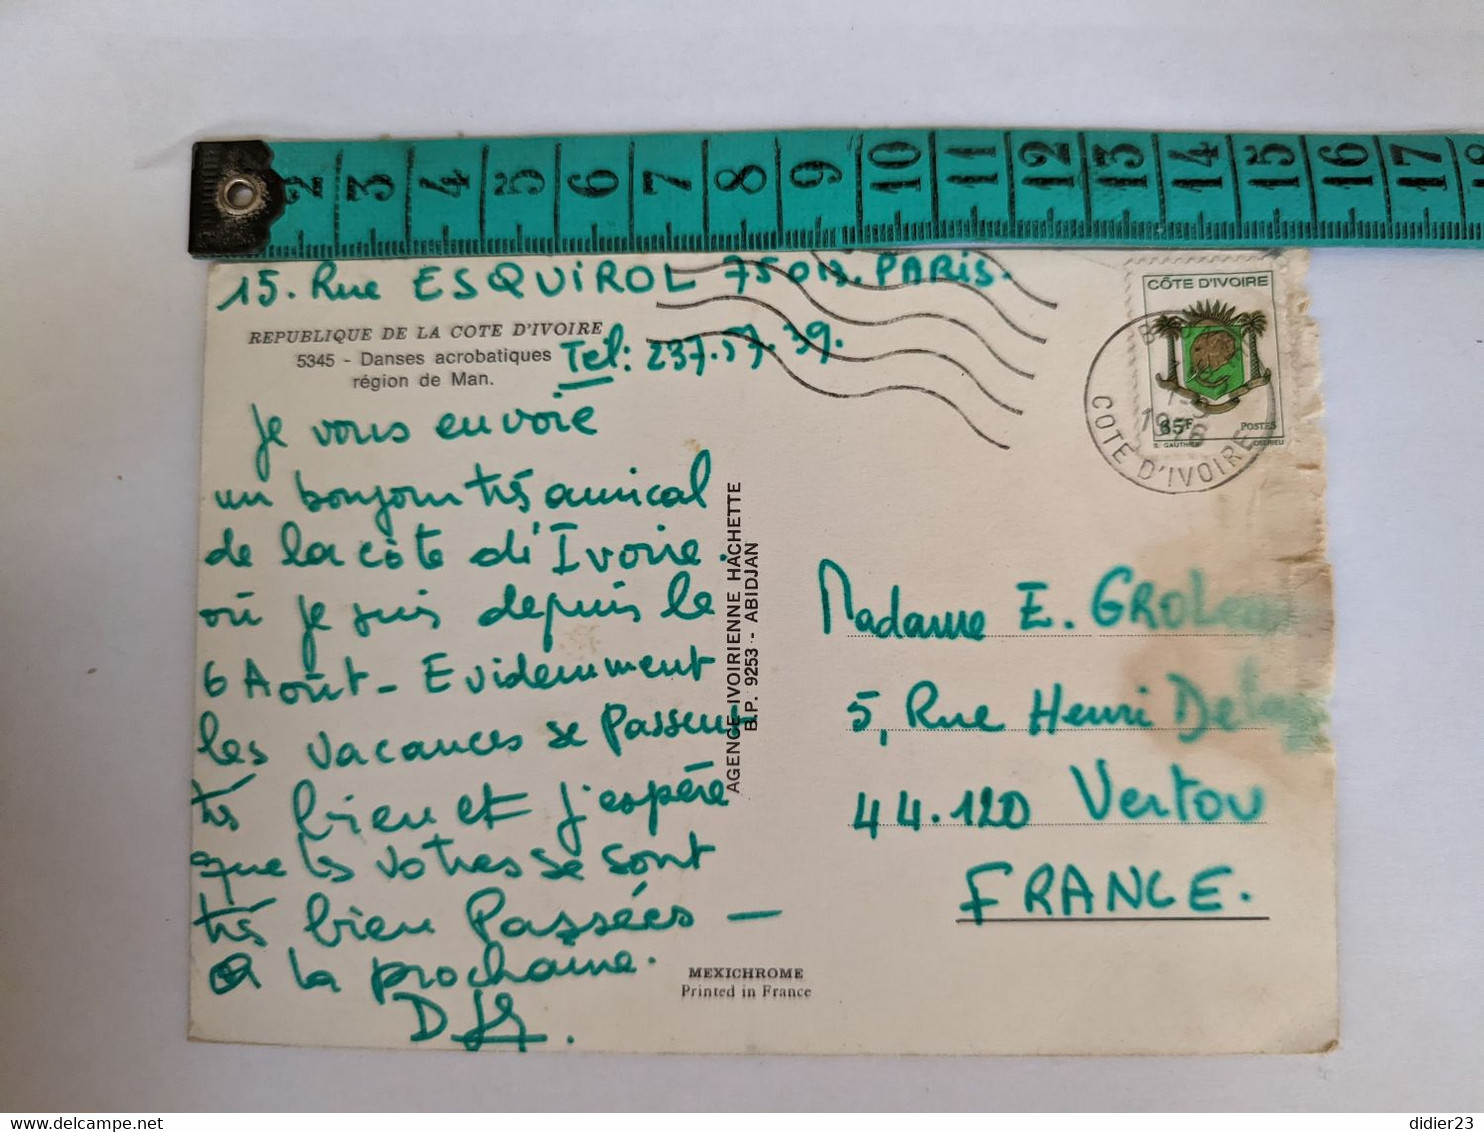 2 3 4 5 6 7 8 9 10 11 12 13 14 15 16 17 18
15. Rue ESQUIROL 75013. PARIS.
REPUBLIQUE DE LA COTE D'IVOIRE
5345 - Danses acrobatiques
région de Man.
Tel: 237.57.39.
Je vous envoie
un bonjour très amical
de la côte d'Ivoire.
où je suis depuis le
6 Août - Evidemment
les vacances se passent
très bien et j'espère
que les votres se sont
très bien Passées -
A la prochaine.
AGENCE IVOIRIENNE HACHETTE
B.P. 9253 - ABIDJAN
MEXICHROME
Printed in France
CÔTE D'IVOIRE
35F
POSTES
S. GAUTHIER
DELRIEU
1976
COTE D'IVOIRE
Madame E.
5, Rue Henri
44.120 Vertou
FRANCE.
didier23